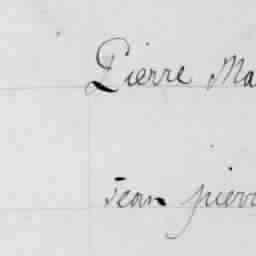 Pierre Ma
Jean pierr